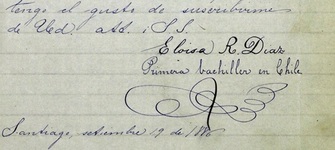 tengo el gusto de suscribirme
de Ued. atd. i S. S.
Eloisa R. Diaz
Primera bachiller en Chile
Santiago, setiembre 19 de